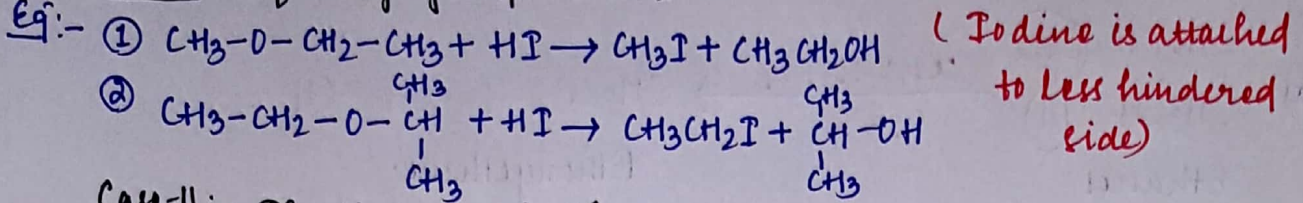 Eg:- ① CH3-O-CH2-CH3 + HI → CH3I + CH3CH2OH
( Iodine is attached
to Less hindered
side)
CH3 CH3
② CH3-CH2-O-CH + HI → CH3CH2I + CH-OH
CH3 CH3
Case-II: